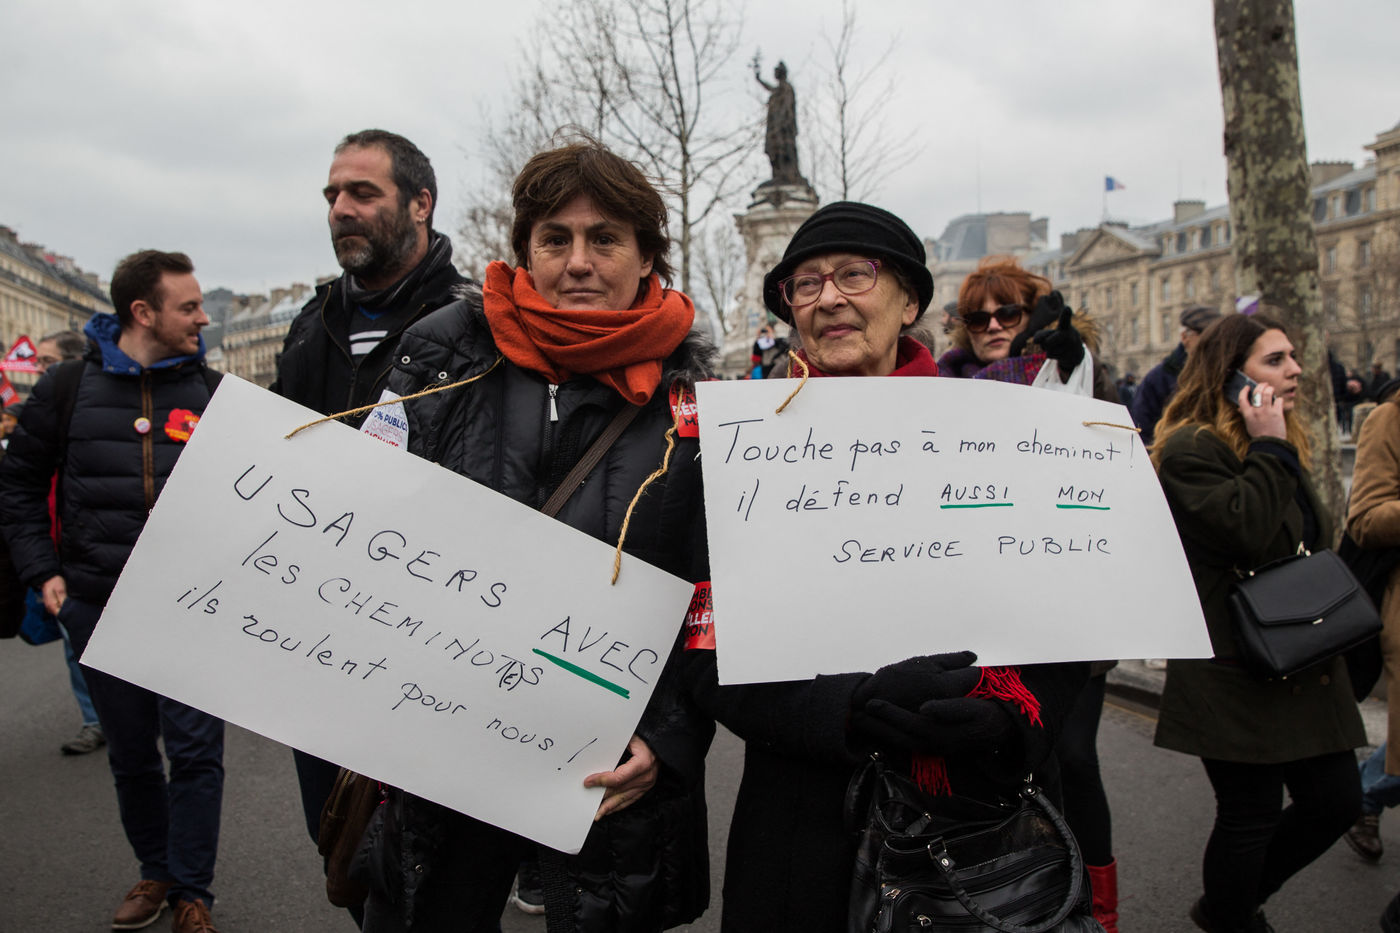 USAGERS AVEC
les CHEMINOT(E)S
ils roulent pour nous !
Touche pas à mon cheminot !
il défend AUSSI MON
SERVICE PUBLIC
% PUBLIC
USAGERS